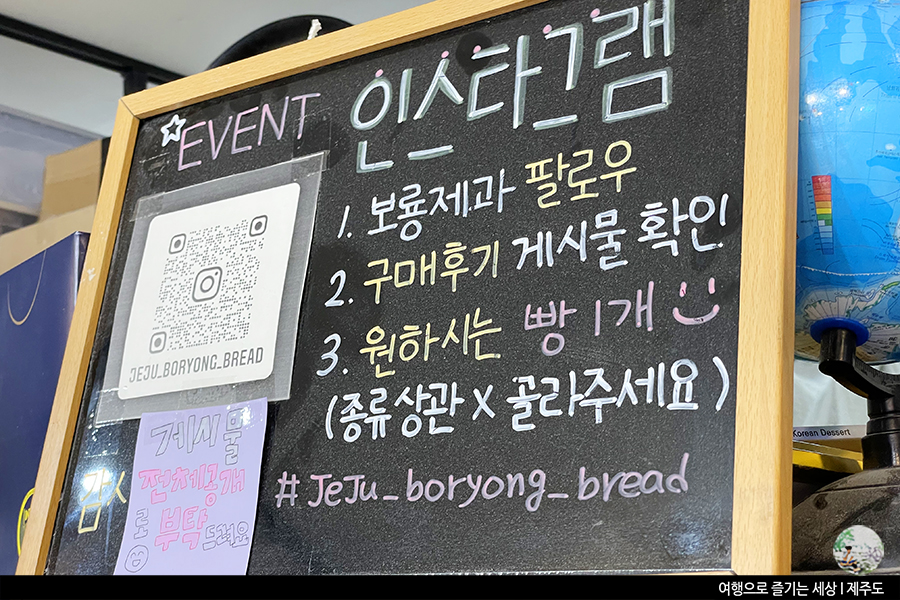 EVENT 인스타그램
1. 보룡제과 팔로우
2. 구매후기 게시물 확인
3. 원하시는 빵 1개
(종류상관 X 골라주세요)
#JeJu_boryong_bread
JEJU_BORYONG_BREAD
게시물
전체공개
로 부탁드려요
Korean Dessert
여행으로 즐기는 세상 | 제주도